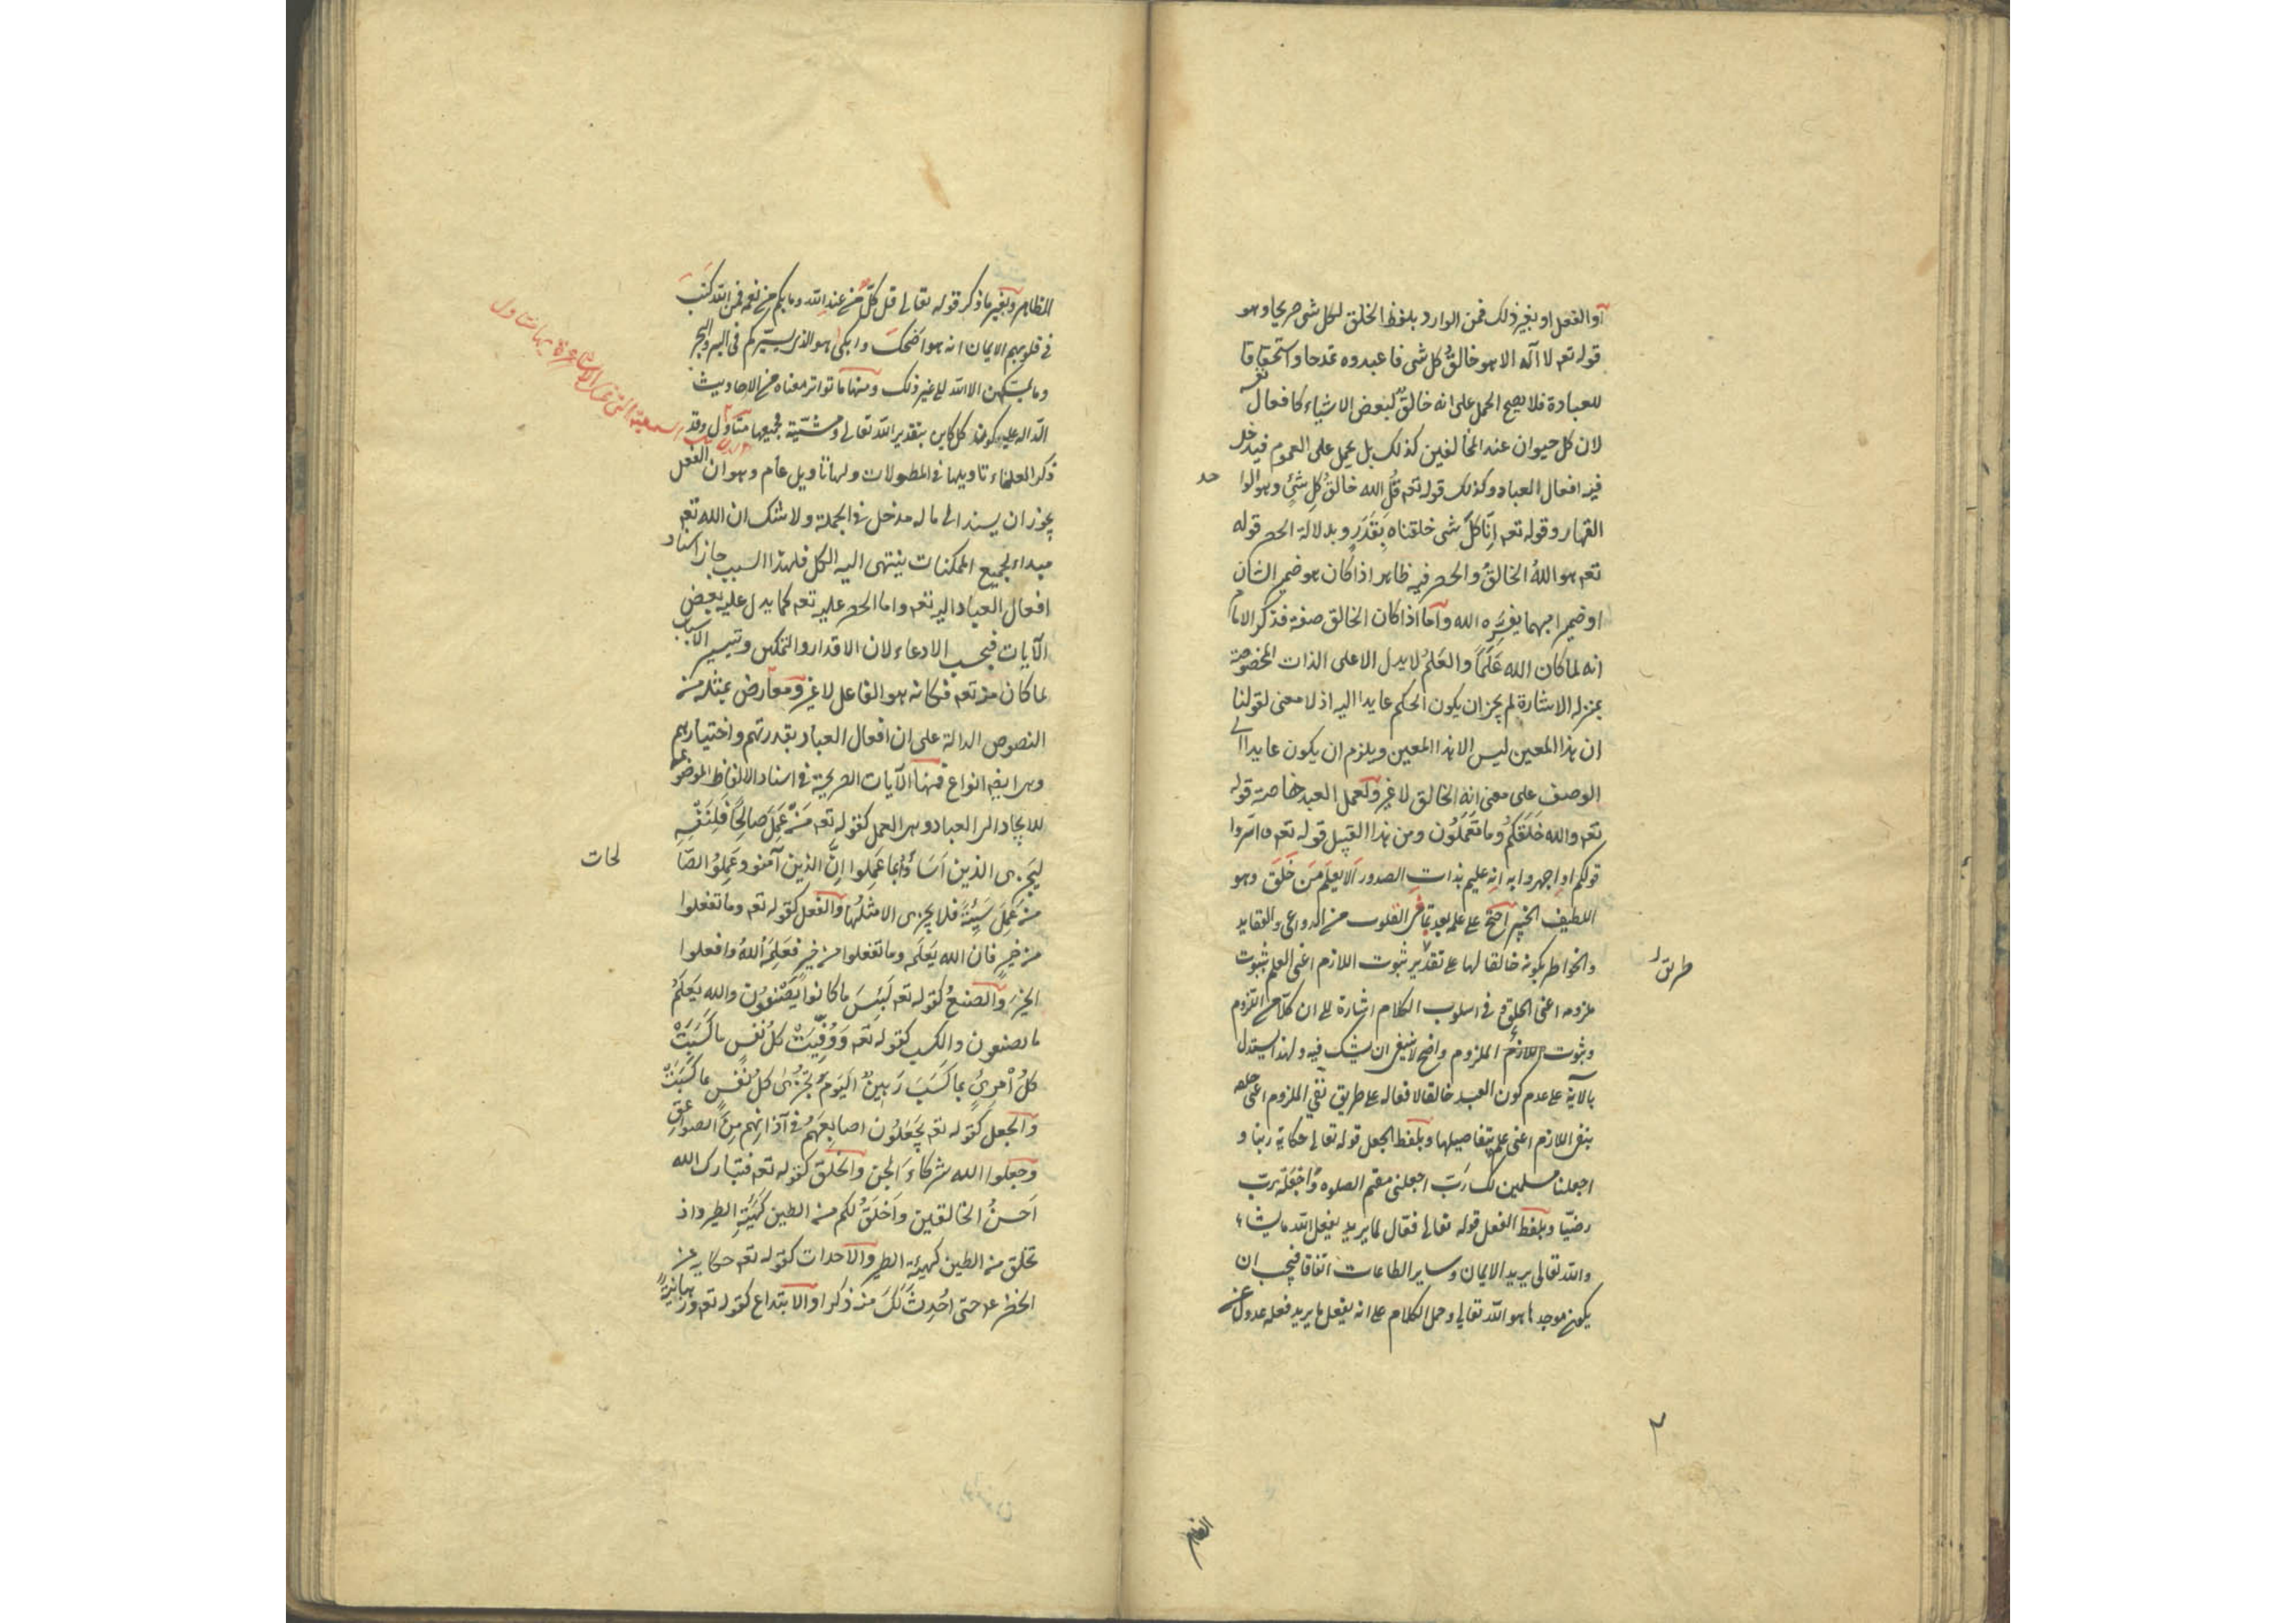 أو الفعل او بغير ذلك فمن الوارد بلفظ الخلق لكل شئ صريحا وهو
قوله تعہ لا اله الا هو خالقُ كل شئ فاعبدوه تمدحا واستحقاقا
للعبادة فلا يصح الحمل على انه خالق لبعض الاشياء كافعال نفسه
لان كل حيوان عند المخالفين كذلك بل يحمل على العموم فيدخل
فيه افعال العباد وكذلك قوله تعہ قُل الله خالقُ كلِ شئٍ وهو الوا
حد
القهار وقوله تعہ اِنّا كلَّ شئ خلقناه بِقَدَرٍ وبدلالة الحصر قوله
تعہ هو اللهُ الخالقُ والحصر فيه ظاهر اذا كان هو ضمير الشان
او ضميرا مبهما يفسّره الله وأما اذا كان الخالق صفة فذكر الامام
انه لما كان الله عَلَمًا والعَلمُ لا يدل الا على الذات المخصوصة
بمنزله الاشارة لم يجز ان يكون الحكم عايدا اليه اذ لا معنى لقولنا
ان هذا المعين ليس الا هذا المعين ويلزم ان يكون عايدا الى
الوصف على معنى انه الخالق لا غير ولعمل العبد خاصة قوله
تعہ والله خَلَقَكُم وما تَعمَلُون ومن هذا القبيل قوله تعہ واسّروا
قولكم او اجهروا به انه عليم بذات الصدور اَلا يعلَم مَن خَلَقَ وهو
اللطيف الخبير احتج على علمه بعد بما في القلوب من الدواعى والعقايد
والخواطر بكونه خالقا لها على تقدير ثبوت اللازم اعنى العلم بثبوت
طريق
ملزومه اعنى الخلق وفى اسلوب الكلام اشارة الى ان كلا من اللزوم
وثبوت اللازم الملزوم واضح لا ينبغى ان يشك فيه ولهذا يستدل
بالآية على عدم كون العبد خالقا لافعاله على طريق نفى الملزوم اعنى خلقه
بنفى اللازم اعنى علمه بتفاصيلها وبلفظ الجعل قوله تعالى حكاية ربنا و
اجعلنا مسلمين لك رَبّ اجعلنى مقيم الصلوه واجعَله ربّ
رضيّا وبلفظ الفعل قوله تعالى فعّال لما يريد يفعل الله ما يشاء
والله تعالى يريد الايمان وساير الطاعات اتفاقا فيجب ان
يكون موجدها هو الله تعالى وحمل الكلام على انه يفعل ما يريد فعله عدول عن
المظاهر وبغير ما ذكر قوله تعالى قل كلّ من عند الله وما بكم من نعمة فمن الله كتبَ
فى قلوبهم الايمان انه هو اضحكَ وابكى هو الذى يسيّركم فى البر والبحر
وما يمسكهن الا الله الى غير ذلك ومنها ما تواتر معناه من الاحاديث
الدّاله على كون كل كاين بتقدير الله تعالى ومشيّته فجميعها متأول وقد
ذكر العلماء تاويلها فى المطولات ولها تاويل عام وهو ان الفعل
يجوز ان يسند الى ما له مدخل فى الجملة ولا شك ان الله تعہ
مبداء لجميع الممكنات ينتهى اليه الكل فلهذا السبب جاز اسناد
افعال العباد اليه تعہ واما الحصر عليه تعہ كما يدل عليه بعض
الآيات فبحسب الادعاء لان الاقدار والتمكين وتيسير الاسباب
لما كان منه تعہ فكانه هو الفاعل لا غير ومعارض بمثله من
النصوص الدالة على ان افعال العباد بقدرتهم واختيارهم
وهى ايضا انواع فمنها الآيات الصريحة فى اسناد الالفاظ الموضوعة
للايجاد الى العباد وهى العمل كقوله تعہ مَنْ عَمِلَ صَالِحًا فَلِنَفْسِه
ليَجزى الذين اَسَاءُوا بما عَمِلوا اِنَّ الذين آمنو وعَمِلُوا الصّا
لحات
من عَمِلَ سَيِئةً فلا يجزى الا مثلُها والفعل كقوله تعہ وما تفعلوا
من خيرٍ فان الله يَعلَمه وما تفعلوا من خيرٍ فعَلِمَهُ اللهُ وافعلوا
الخيرَ والصنعُ كقوله تعہ لَبِئسَ ما كانوا يَصْنَعُون والله يَعلَمُ
ما تصنعون والكسب كقوله تعہ وَوُفّيَتْ كلُ نفسٍ ما كَسَبَتْ
كلُ اْمرِئٍ بما كَسَبَ رَهِينٌ اليَومَ تُجْزىٰ كلُ نَفس بما كَسَبَتْ
والجعل كقوله تعہ يَجعَلُون اصابِعَهُم فى آذانِهم مِنَ الصواعِق
وجعلوا الله شركاءَ الجن والخلق كقوله تعہ فتبارك الله
اَحسَنُ الخالقين واَخلُقُ لكم من الطين كَهَيئةِ الطير واذ
تخلق من الطين كهيئة الطير والاحداث كقوله تعہ حكاية عن
الخضر عہ حتى اُحدِثَ لَكَ منه ذكرا والابتداع كقوله تعہ ورهبانيةً